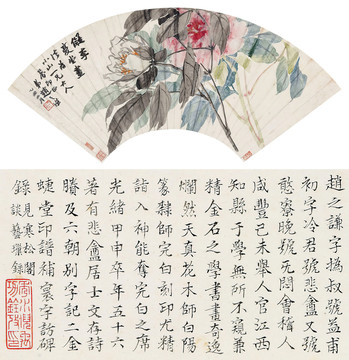 趙之謙字撝叔號益甫
初字冷君號悲盦又號
憨寮晚號无悶會稽人
咸豐己未舉人官江西
知縣于學無所不窺兼
精金石之學書畫奇逸
爛然天真花木師白陽
篆隸師完白刻印尤精
詣入神能奪完白之席
光緒甲申卒年五十六
著有悲盦居士文存詩
賸及六朝別字記二金
蜨堂印譜補寰宇訪碑
錄見寒松閣
談藝瑣錄